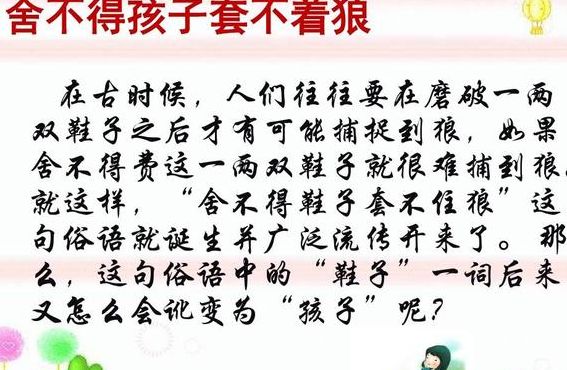 舍不得孩子套不着狼
在古时候，人们往往要在磨破一两
双鞋子之后才有可能捕捉到狼，如果
舍不得费这一两双鞋子就很难捕到狼。
就这样，“舍不得鞋子套不住狼”这
句俗语就诞生并广泛流传开来了。那
么，这句俗语中的“鞋子”一词后来
又怎么会讹变为“孩子”呢？